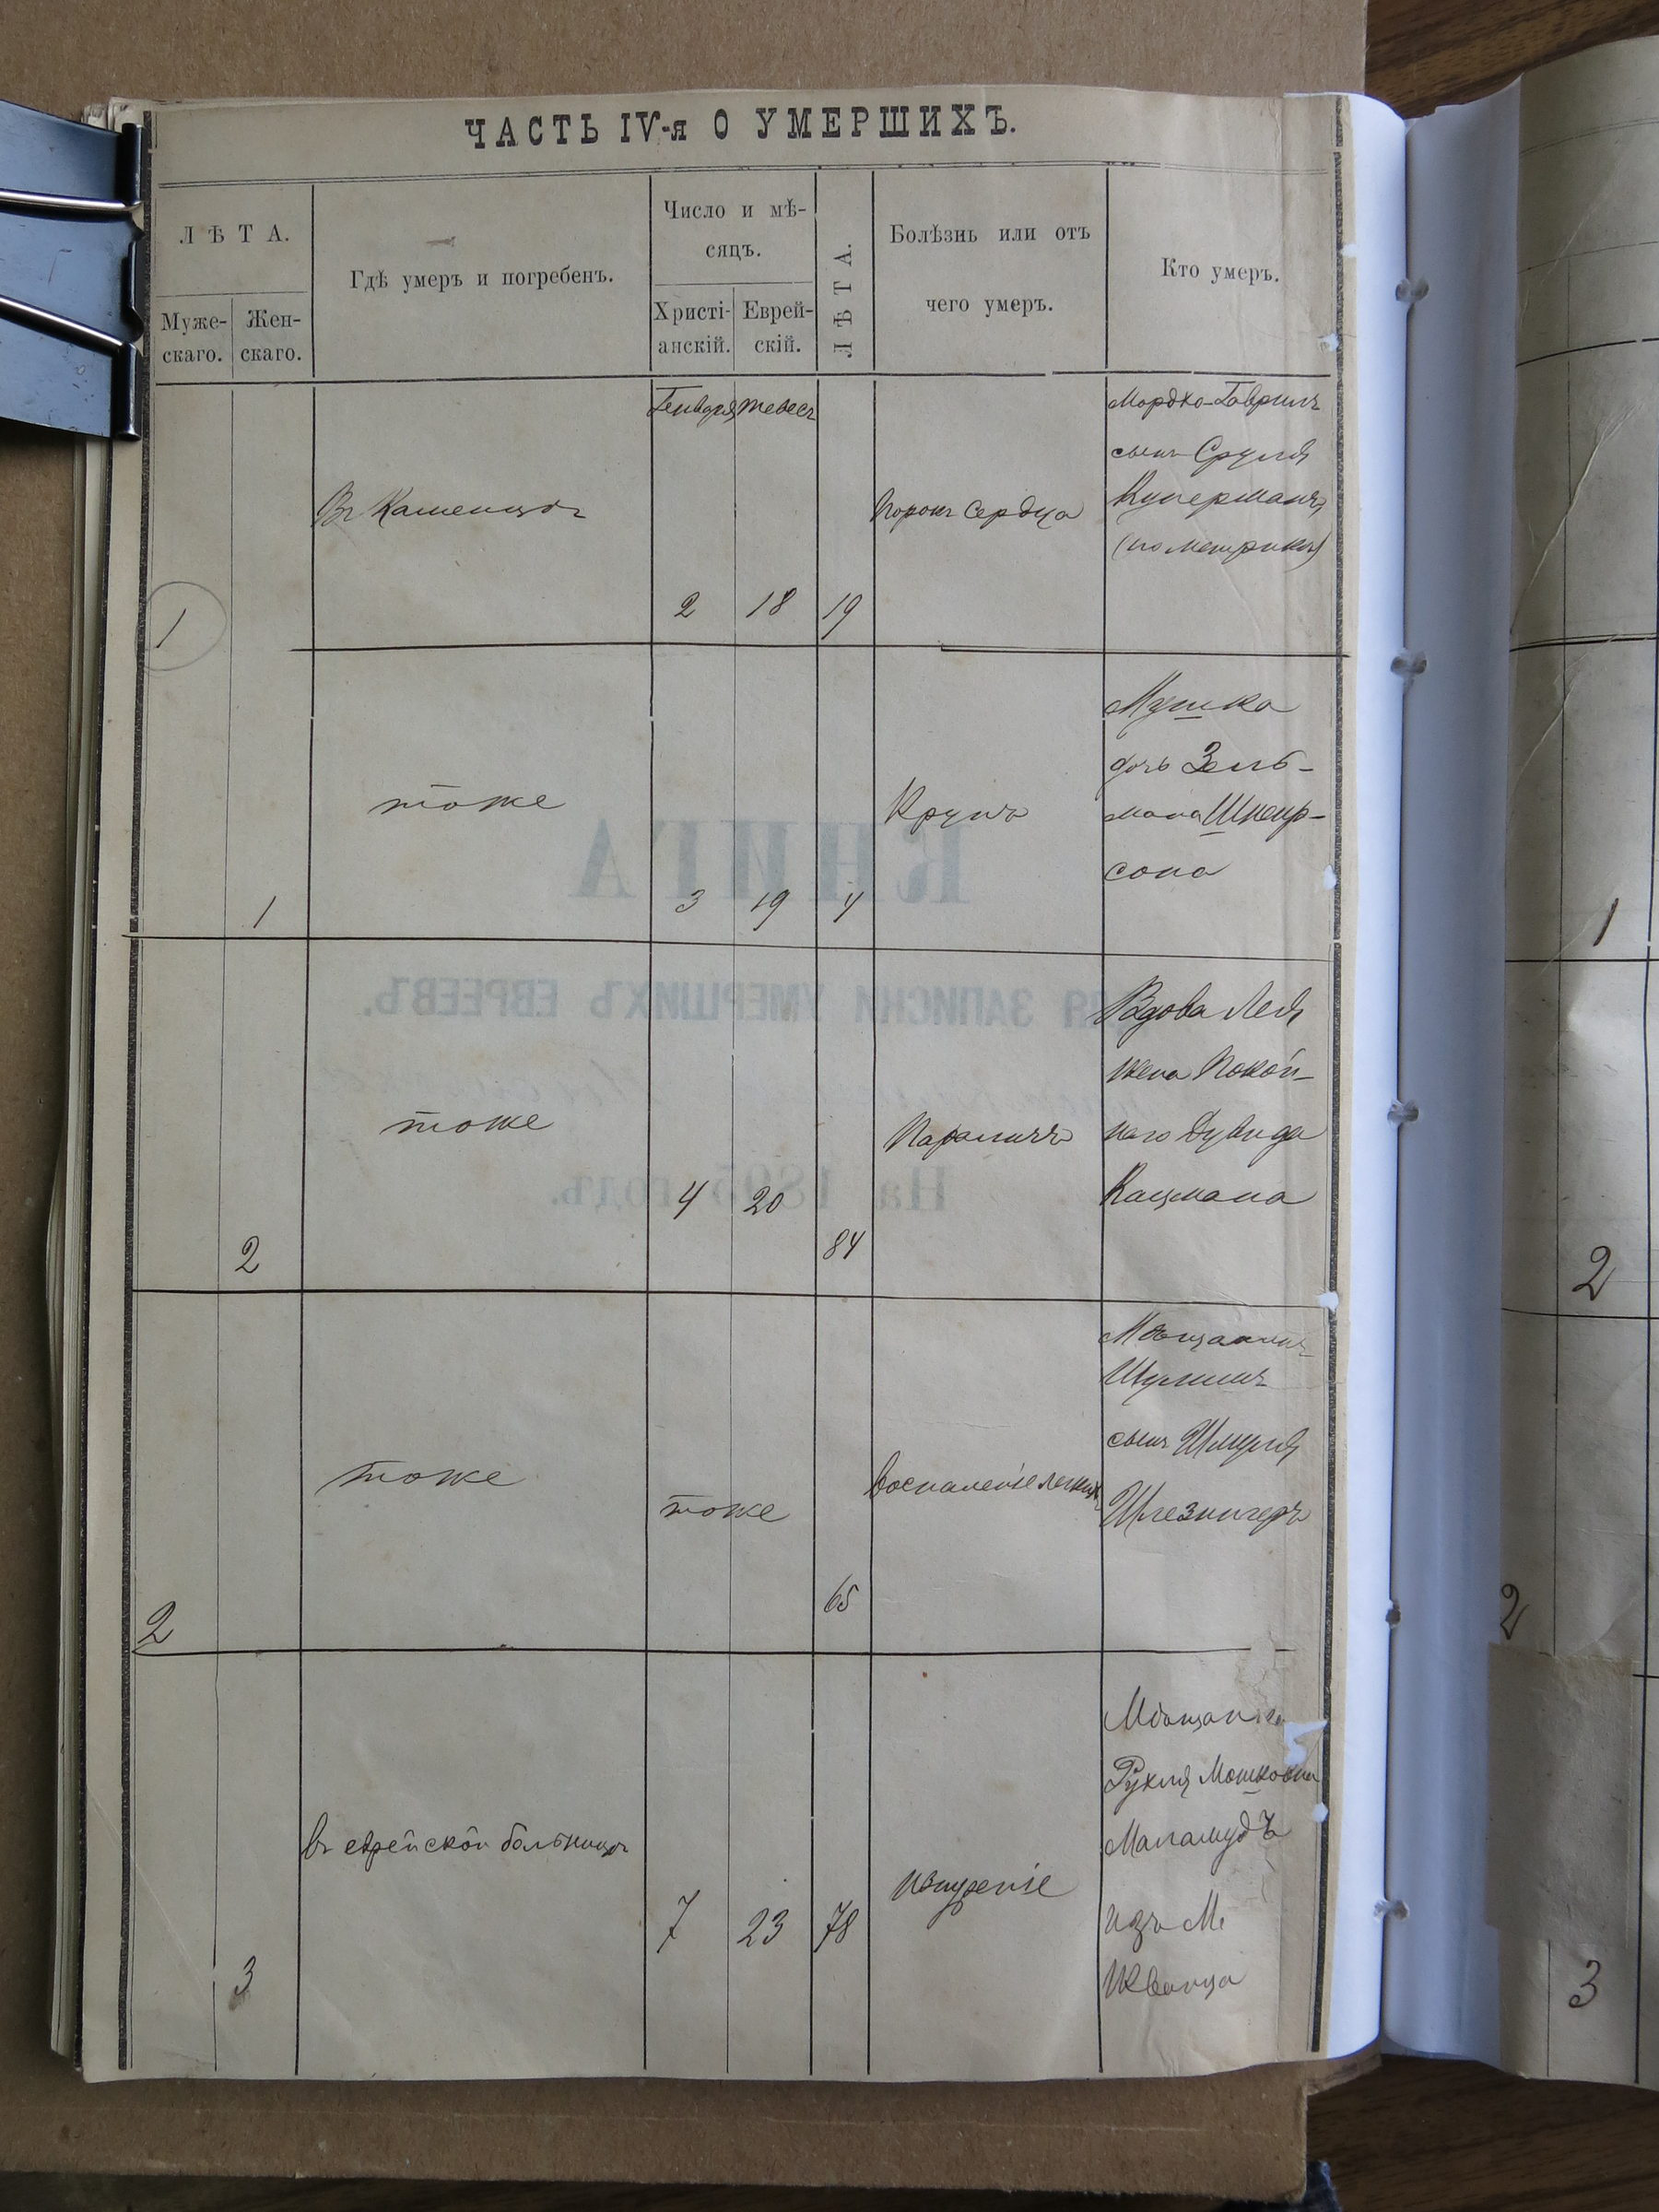 ЧАСТЬ IV-я О УМЕРШИХЪ.
ЛѢТА.
Муже-
скаго.
Жен-
скаго.
Гдѣ умеръ и погребенъ.
Число и мѣ-
сяцъ.
Христі-
анскій.
Еврей-
скій.
ЛѢТА.
Болѣзнь или отъ
чего умеръ.
Кто умеръ.
Генваря
тевесъ
1
Въ Каменцѣ
2
18
19
Порокъ сердца
Мордко-Гавриилъ
сынъ Сруля
Куперманъ
(по метрикѣ)
1
тоже
3
19
4
Крупъ
Мушка
дочь Зель-
мана Шнеир-
сона
2
тоже
4
20
84
Параличъ
Вдова Лея
жена Покой-
наго Дувида
Кацмана
2
тоже
тоже
65
Воспаленіе легкихъ
Мѣщанинъ
сынъ Шмуля
Шлезингеръ
3
въ еврейской больницѣ
7
23
78
Изнуреніе
Рухля Мошковна
Маламудъ
изъ М.
Жванца
КНИГА
ДЛЯ ЗАПИСКИ УМЕРШИХЪ ЕВРЕЕВЪ.
На 1895 годъ.
1
2
2
3